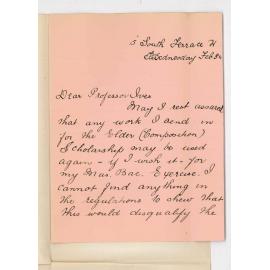 5 South Terrace W
Wednesday Feb 8th
Dear Professor Ives
May I rest assured
that any work I send in
for the Elder (Composition)
Scholarship may be used
again - if I wish it - for
my Mus. Bac. Exercise. I
cannot find anything in
the regulations to shew that
this would disqualify the